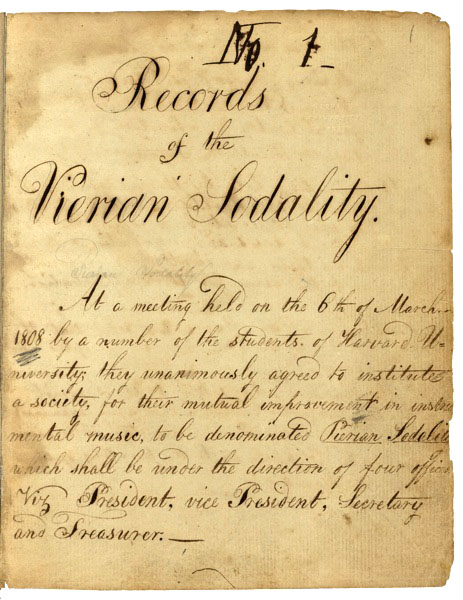 No. 1
1
Records
of the
Pierian Sodality.
Pierian Sodality
At a meeting held on the 6th of March
1808 by a number of the students of Harvard U-
niversity, they unanimously agreed to institute
a society, for their mutual improvement in instru
mental music, to be denominated Pierian Sodalit
which shall be under the direction of four officers
Viz President, vice President, Secretary
and Treasurer.—